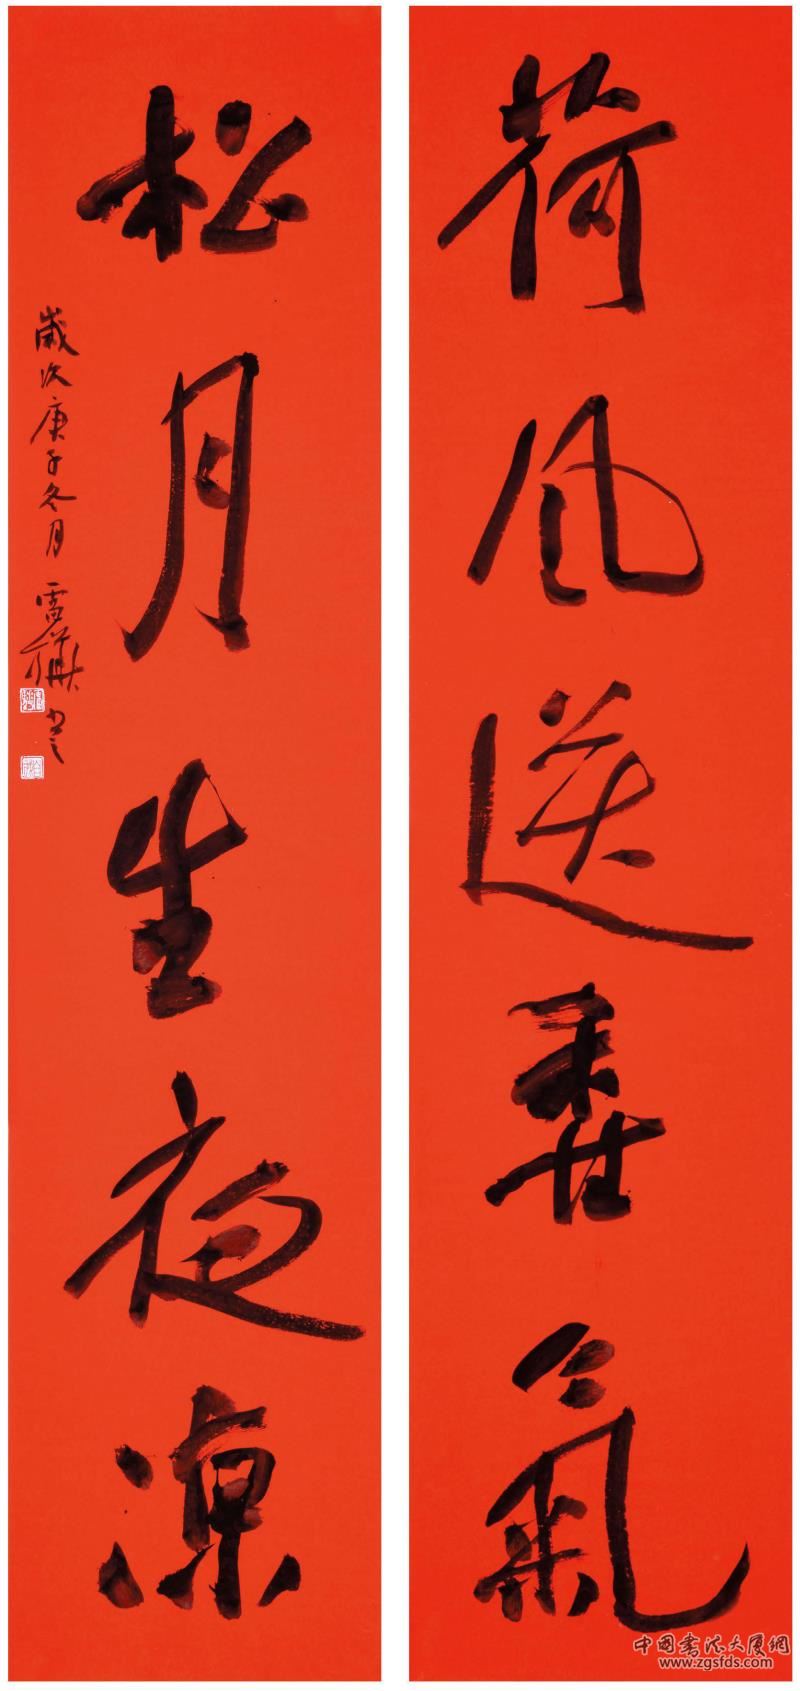 荷风送香氣
松月生夜凉
歲次庚子冬月
中國書法大厦網
www.zgsfds.com